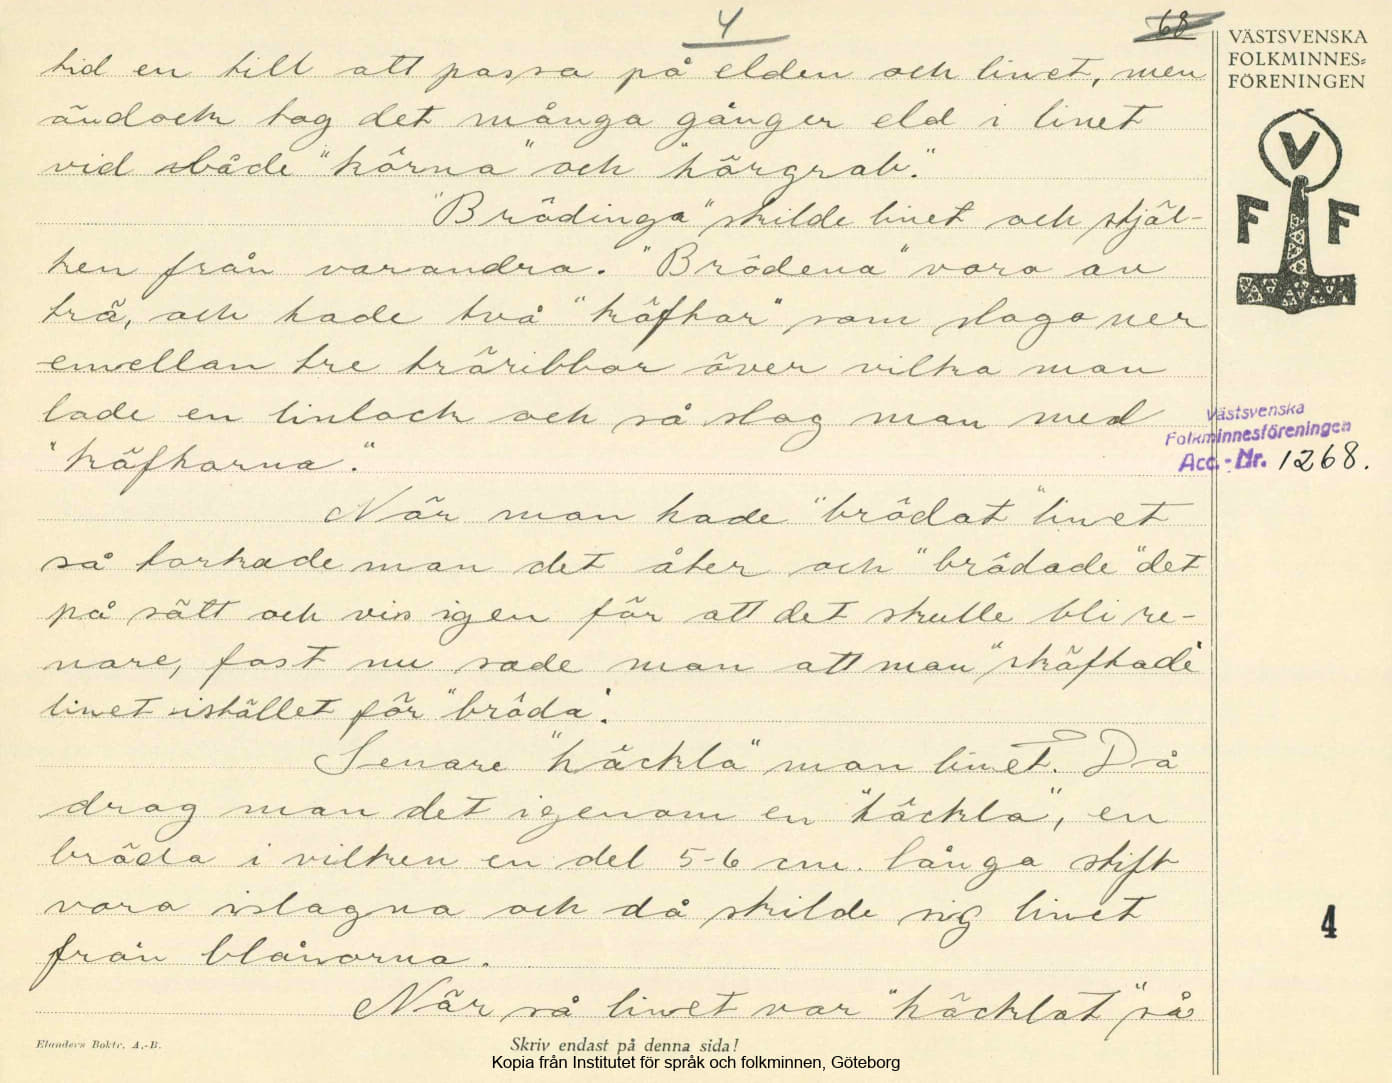 4
68
VÄSTSVENSKA
FOLKMINNES=
FÖRENINGEN
V
F F
tid en till att passa på elden och linet, men
ändock tog det många gånger eld i linet
vid både "körna" och "hörgrab".
"Brödinga" skilde linet och stjäl-
ken från varandra. "Brödena" voro av
trä, och hade två "käfkar" som slogo ner
emellan tre träribbor över vilka man
lade en linlock och så slog man med
"käfkarna".
När man hade "brödat" linet
så torkade man det åter och "brödade" det
på sätt och vis igen för att det skulle bli re-
nare, fast nu sade man att man "skäfkade"
linet istället för "bröda".
Senare "häckla" man linet. Då
drog man det igenom en "häckla", en
bräda i vilken en del 5-6 cm. långa stift
voro islagna och då skilde sig linet
från blånorna.
När så linet var "häcklat" så
Västsvenska
Folkminnesföreningen
Acc.-Nr. 1268.
4
Elanders Boktr. A.-B.
Skriv endast på denna sida!
Kopia från Institutet för språk och folkminnen, Göteborg